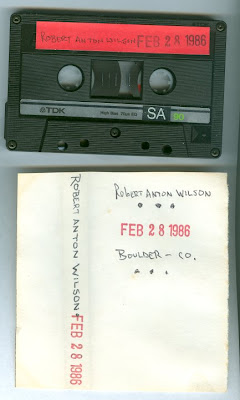 ROBERT ANTON WILSON FEB 28 1986
TDK
SA 90
ROBERT ANTON WILSON
FEB 28 1986
BOULDER - CO.
ROBERT ANTON WILSON FEB 28 1986